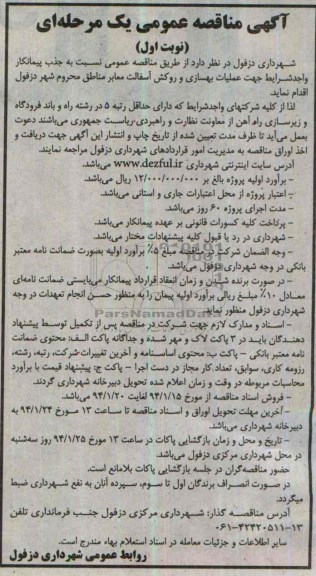 آگهی مناقصه عمومی یک مرحله‌ای
(نوبت اول)
شـهرداری دزفول در نظر دارد از طریق مناقصه عمومی نسبت به جذب پیمانکار
واجدشـرایط جهت عملیات بهسازی و روکش آسفالت معابر مناطق محروم شهر دزفول
اقدام نماید.
لذا از کلیه شرکتهای واجدشرایط که دارای حداقل رتبه ۵ در رشته راه و باند فرودگاه
و زیرسازی راه آهن از معاونت نظارت و راهبردی ریاست جمهوری می‌باشند دعوت
بعمل می‌آید تا ظرف مدت تعیین شده از تاریخ چاپ و انتشار این آگهی جهت دریافت و
اخذ اوراق مناقصه به مدیریت امور قراردادهای شهرداری دزفول مراجعه نمایند.
آدرس سایت اینترنتی شهرداری www.dezful.ir می‌باشد.
- برآورد اولیه پروژه بالغ بر ۱۲/۰۰۰/۰۰۰/۰۰۰ ریال می‌باشد.
- اعتبار پروژه از محل اعتبارات جاری و استانی می‌باشد.
- مدت اجرای پروژه ۶۰ روز می‌باشد.
- پرداخت کلیه کسورات قانونی بر عهده پیمانکار می‌باشد.
- شهرداری در رد یا قبول کلیه پیشنهادات مختار می‌باشد.
- وجه الضمان شرکت در مناقصه مبلغ ۵٪ برآورد اولیه بصورت ضمانت نامه معتبر
بانکی در وجه شهرداری دزفول می‌باشد.
- در صورت برنده شدن و زمان انعقاد قرارداد پیمانکار می‌بایستی ضمانت نامه‌ای
معـادل ۱۰٪ مبلـغ ریالی برآورد اولیه پیمان را به منظور حسن انجام تعهدات در وجه
شهرداری دزفول منظور نماید.
- اسـناد و مدارک لازم جهت شـرکت در مناقصه پس از تکمیل توسط پیشنهاد
دهندگان باید در ۳ پاکت لاک و مهر شده و جداگانه پاکت الـف: محتوی ضمانت
نامه معتبر بانکی - پاکت ب: محتوی اساسنامه و آخرین تغییرات شرکت، رتبه، رشته،
رزومه کاری، سوابق، تعداد کار مجاز در دست اجرا - پاکت ج: پیشنهاد قیمت با برآورد
محاسبات مربوطه در وقت و زمان اعلام شده تحویل دبیرخانه شهرداری گردند.
- فروش اسناد مناقصه از مورخ ۹۴/۱/۱۵ لغایت ۹۴/۱/۲۰ می‌باشد.
- آخرین مهلت تحویل اوراق و اسـناد مناقصه تا ساعت ۱۳ مـورخ ۹۴/۱/۲۴ به
دبیرخانه شهرداری می‌باشد.
- تاریخ و محل و زمان بازگشایی پاکات در ساعت ۱۳ مورخ ۹۴/۱/۲۵ روز سه‌شنبه
در محل شهرداری مرکزی دزفول می‌باشد.
حضور مناقصه‌گران در جلسه بازگشایی پاکات بلامانع است.
در صورت انصـراف برندگان اول تا سـوم، سـپرده آنان به نفع شهرداری ضبط
میگردد.
آدرس مناقصـه گذار: شـهرداری مرکزی دزفول جنـب فرمانداری تلفن
۰۶۱-۴۲۴۲۰۵۱۱-۱۳
سایر اطلاعات و جزئیات معامله در اسناد استعلام بهاء مندرج است.
روابط عمومی شهرداری دزفول
ParsNamadData